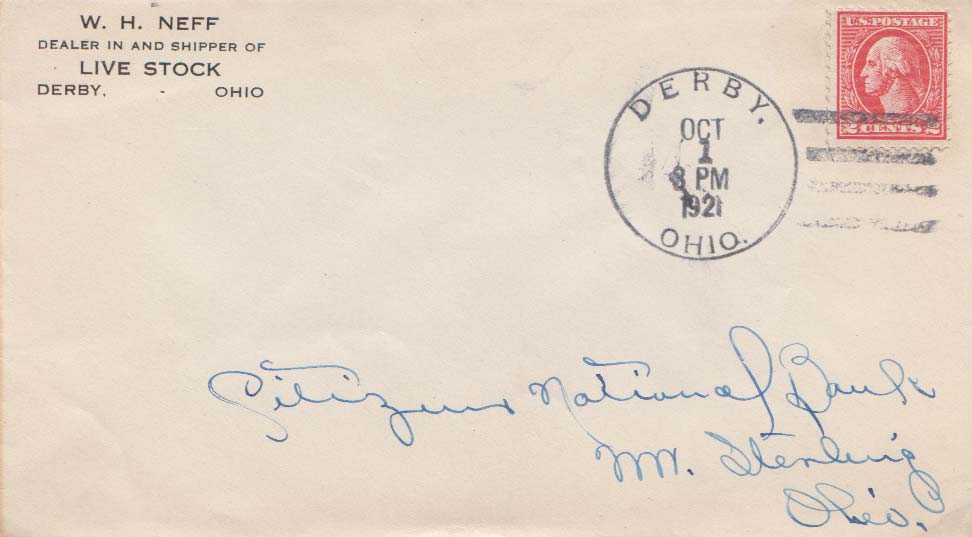 W. H. NEFF
DEALER IN AND SHIPPER OF
LIVE STOCK
DERBY, - OHIO
U.S. POSTAGE
2 CENTS 2
DERBY,
OCT
1
3 PM
1921
OHIO.
Citizens National Bank
Mt. Sterling
Ohio.